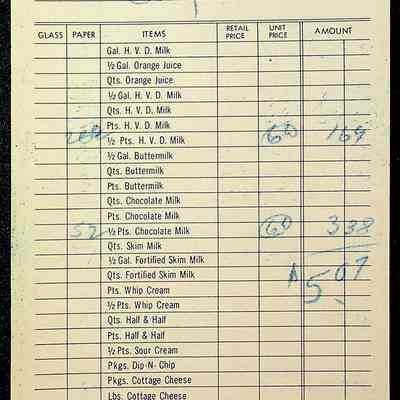 GLASS PAPER ITEMS RETAIL PRICE UNIT PRICE AMOUNT
Gal. H. V. D. Milk
½ Gal. Orange Juice
Qts. Orange Juice
½ Gal. H. V. D. Milk
Qts. H. V. D. Milk
Pts. H. V. D. Milk
½ Pts. H. V. D. Milk 169
½ Gal. Buttermilk
Qts. Buttermilk
Pts. Buttermilk
Qts. Chocolate Milk
Pts. Chocolate Milk
52 ½ Pts. Chocolate Milk 338
Qts. Skim Milk
½ Gal. Fortified Skim Milk
Qts. Fortified Skim Milk 507
Pts. Whip Cream
½ Pts. Whip Cream
Qts. Half & Half
Pts. Half & Half
½ Pts. Sour Cream
Pkgs. Dip-N-Chip
Pkgs. Cottage Cheese
Lbs. Cottage Cheese